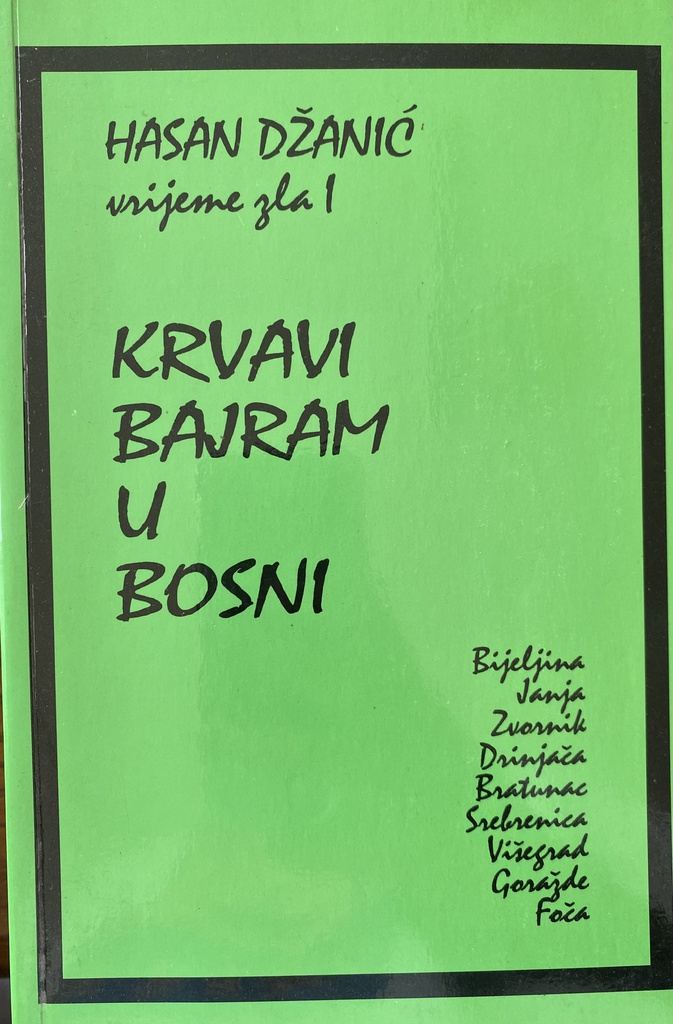 HASAN DŽANIĆ
vrijeme zla I
KRVAVI
BAJRAM
U
BOSNI
Bijeljina
Janja
Zvornik
Drinjača
Bratunac
Srebrenica
Višegrad
Goražde
Foča